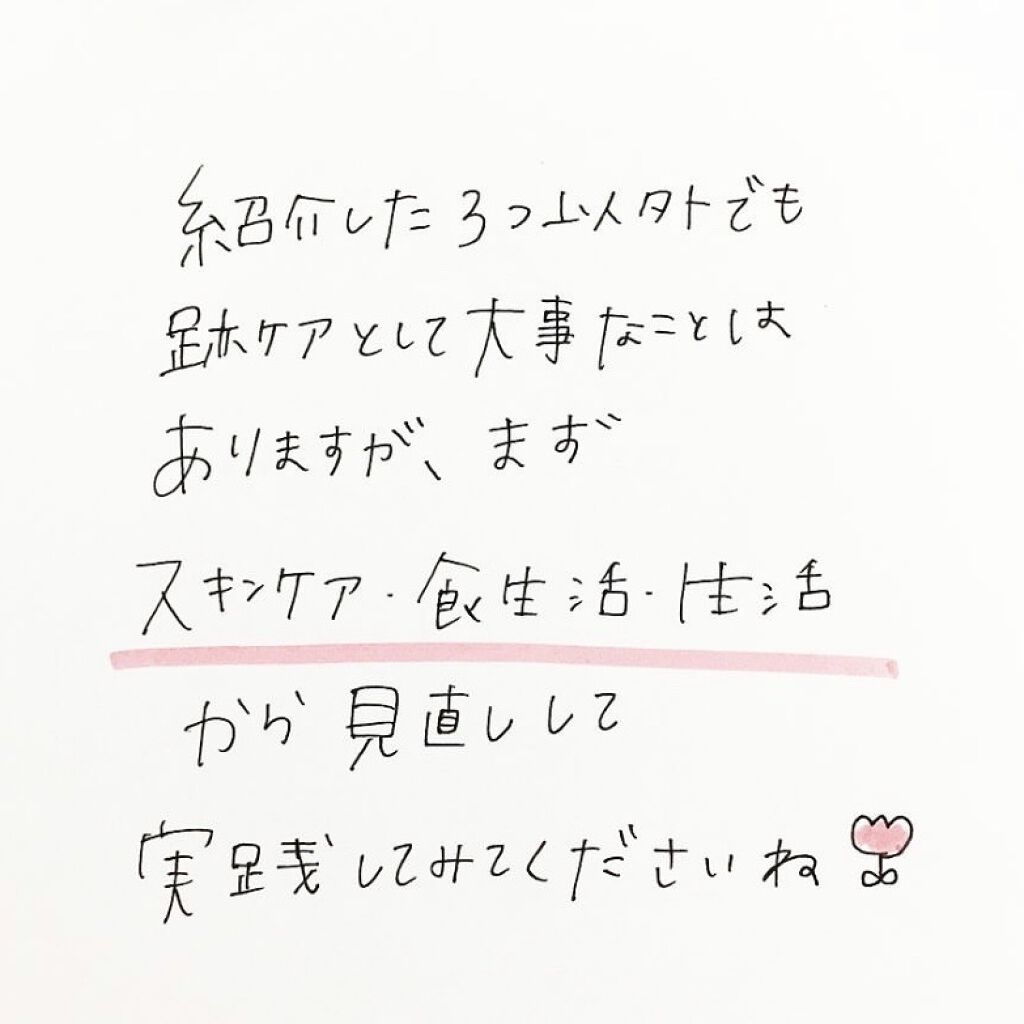 紹介した3つ以外でも
跡ケアとして大事なことは
ありますが、まず
スキンケア・食生活・生活
から見直しして
実践してみてくださいね